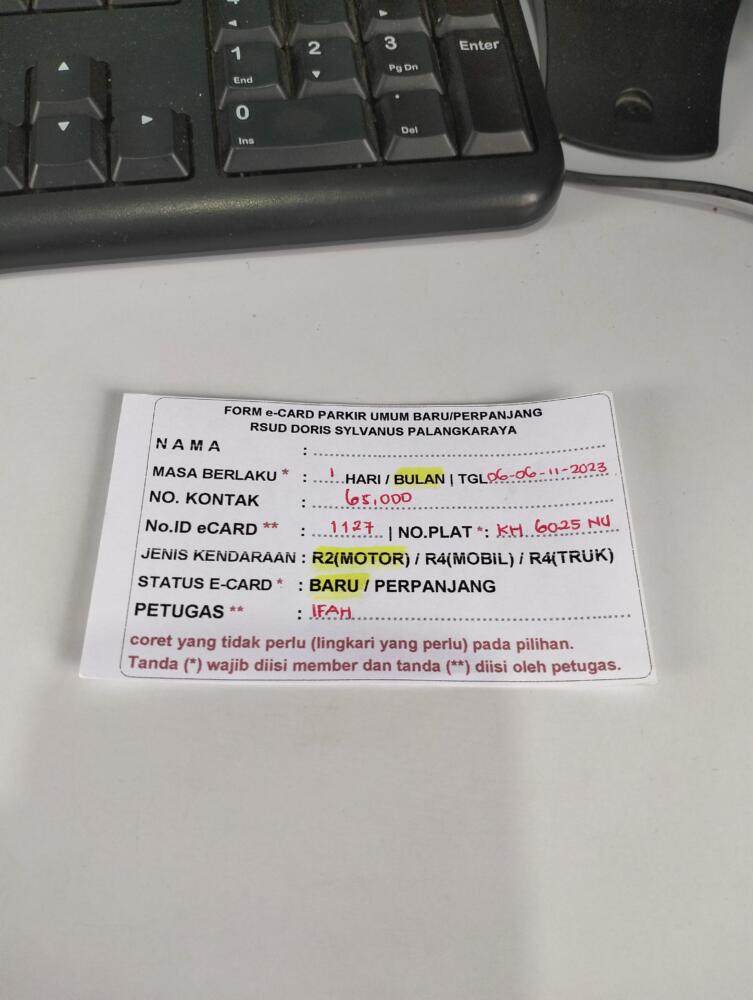 1
End
2
3
Pg Dn
Enter
0
Ins
.
Del
FORM e-CARD PARKIR UMUM BARU/PERPANJANG
RSUD DORIS SYLVANUS PALANGKARAYA
N A M A :
MASA BERLAKU * : 1 HARI / BULAN | TGL 06-06-11-2023
NO. KONTAK : 65,000
No.ID eCARD ** : 1127 | NO.PLAT *: KH 6025 NU
JENIS KENDARAAN : R2(MOTOR) / R4(MOBIL) / R4(TRUK)
STATUS E-CARD * : BARU / PERPANJANG
PETUGAS ** : IFAH
coret yang tidak perlu (lingkari yang perlu) pada pilihan.
Tanda (*) wajib diisi member dan tanda (**) diisi oleh petugas.